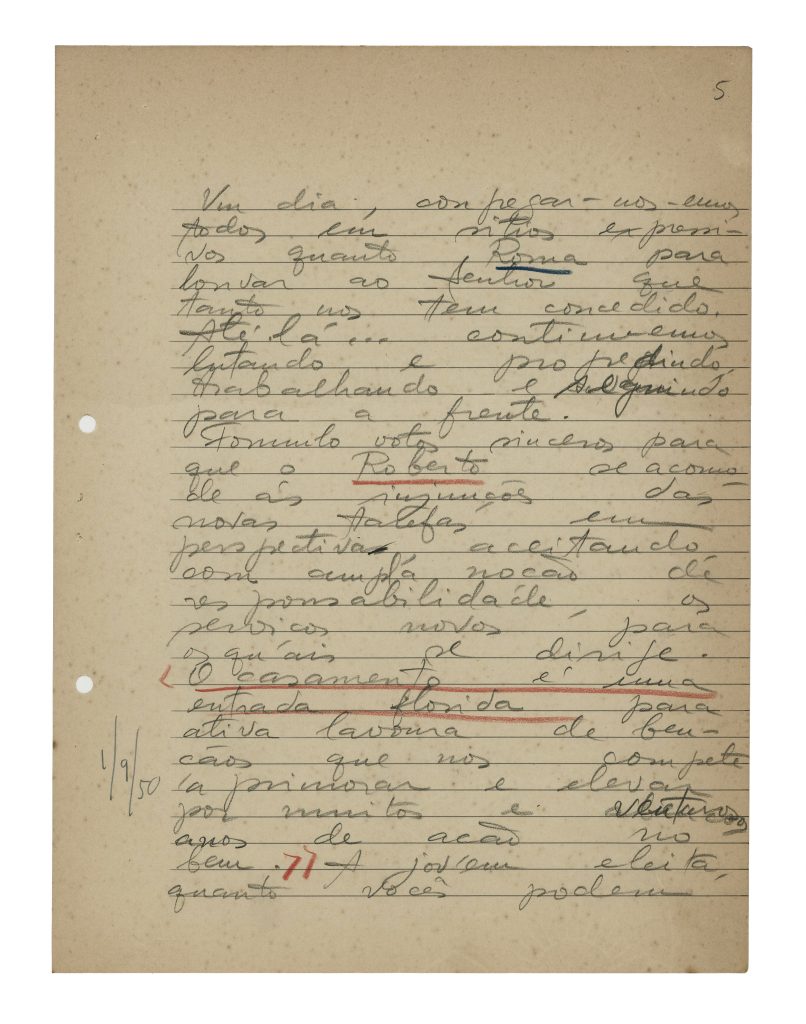 5
Um dia, congregar-nos-emos
todos em sitios expressi-
vos quanto Roma para
louvar ao Senhor que
tanto nos tem concedido.
Até lá... continuemos
lutando e progredindo,
trabalhando e seguindo
para a frente.
Formulo votos sinceros para
que o Roberto se acomo
de ás injunções das
novas tarefas em
perspectiva, aceitando
com ampla noção de
responsabilidade, os
serviços novos para
os quais se dirige.
O casamento é uma
entrada florida para
ativa lavoura de ben-
çãos que nos compete
aprimorar e elevar
por muitos e venturosos
anos de ação no
bem." A jovem eleita,
quanto vocês podem
1/9/50